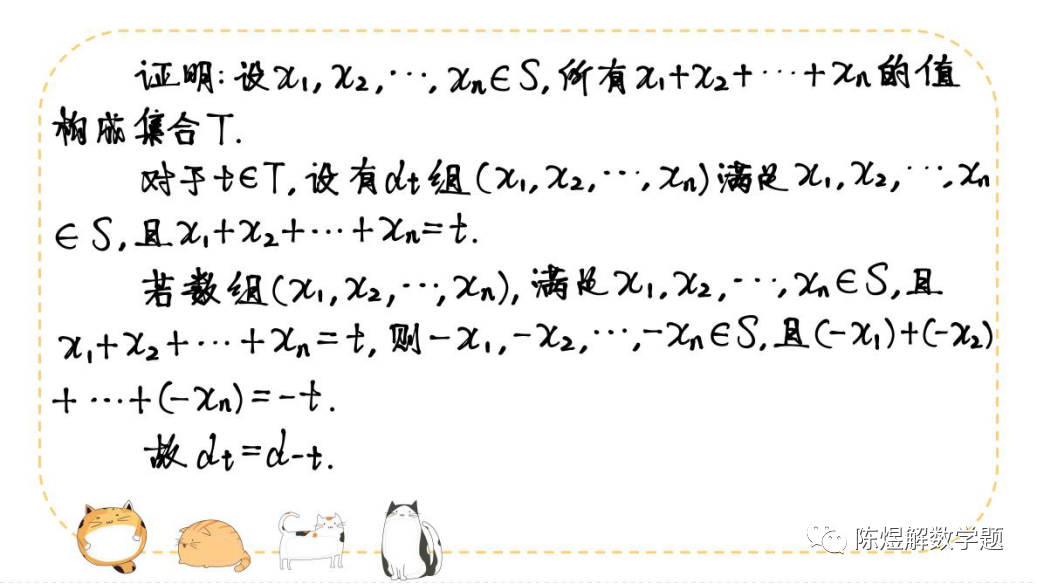 证明:设x₁,x₂,⋯,xₙ∈S,所有x₁+x₂+⋯+xₙ的值
构成集合T.
对于t∈T,设有dₜ组(x₁,x₂,⋯,xₙ)满足x₁,x₂,⋯,xₙ
∈S,且x₁+x₂+⋯+xₙ=t.
若数组(x₁,x₂,⋯,xₙ),满足x₁,x₂,⋯,xₙ∈S,且
x₁+x₂+⋯+xₙ=t,则-x₁,-x₂,⋯,-xₙ∈S,且(-x₁)+(-x₂)
+⋯+(-xₙ)=-t.
故dₜ=d₋ₜ.
陈煜解数学题